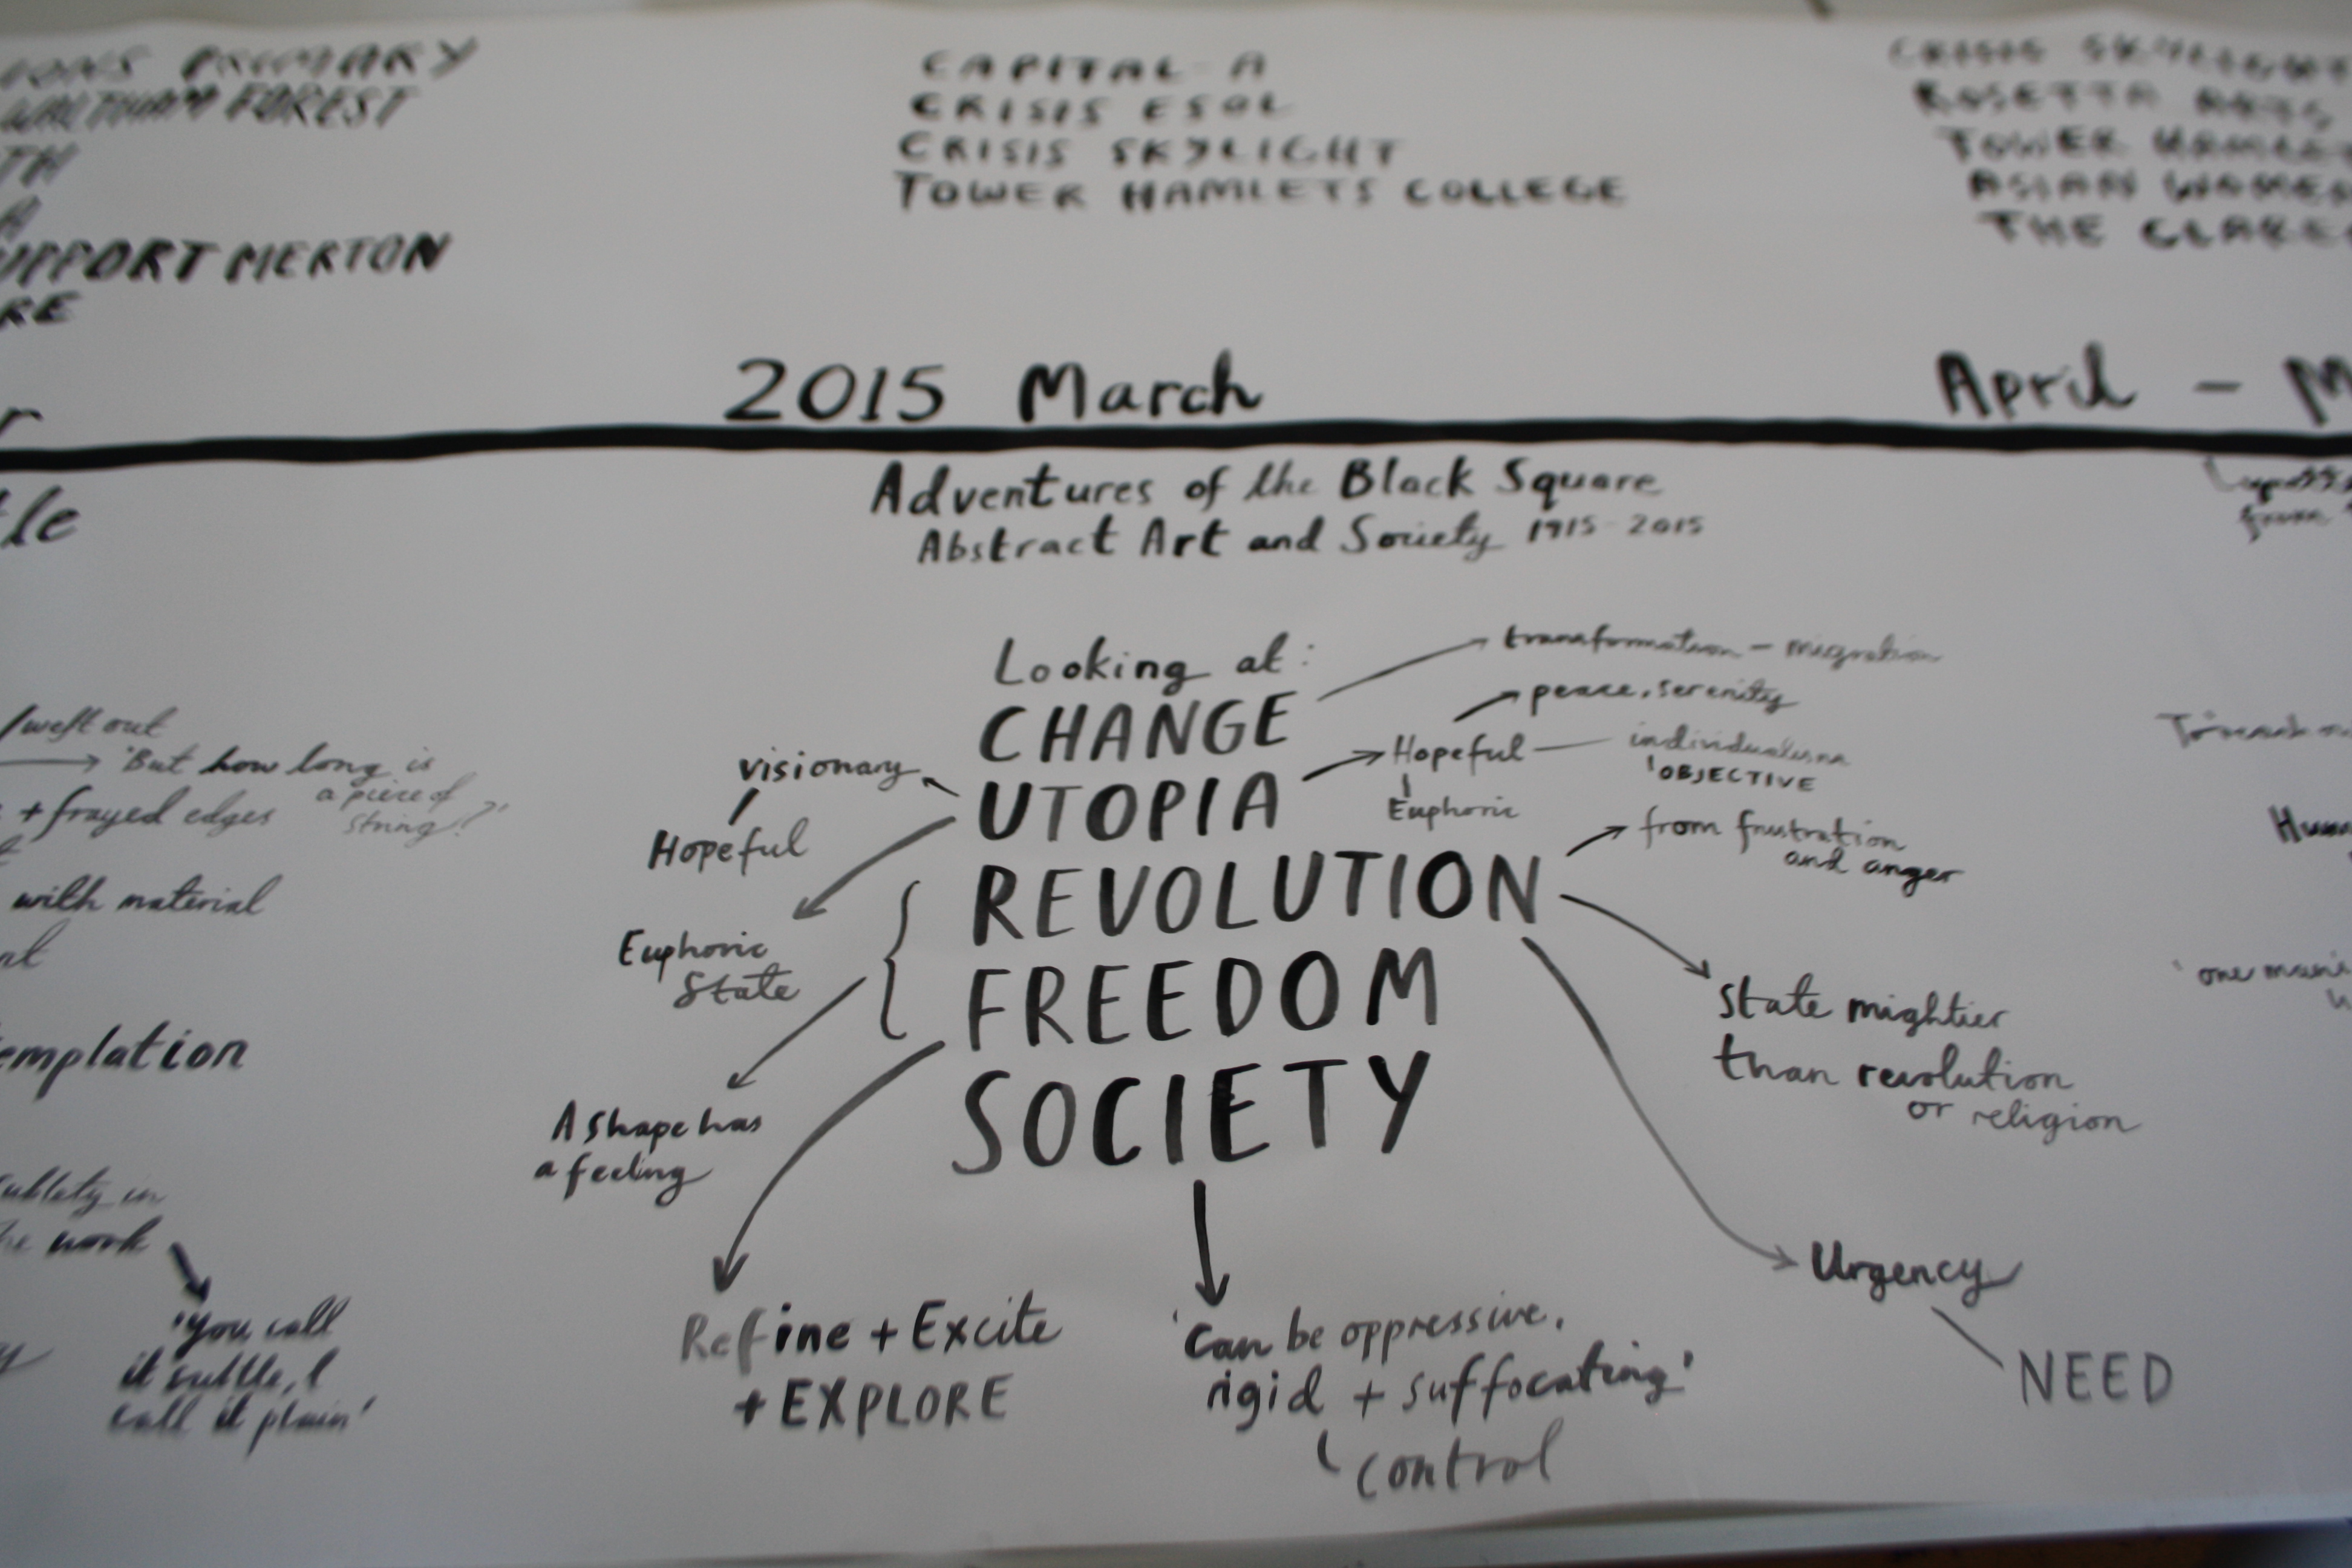 PRIMARY
WALTHAM FOREST
TH
A
SUPPORT MERTON
RE
CAPITAL A
CRISIS ESOL
CRISIS SKYLIGHT
TOWER HAMLETS COLLEGE
CRISIS SKYLIGHT
ROSETTA ARTS
TOWER HAMLETS
ASIAN WOMEN
THE
2015 March
April - M
Adventures of the Black Square
Abstract Art and Society 1915-2015
Looking at:
CHANGE
UTOPIA
REVOLUTION
FREEDOM
SOCIETY
transformation - migration
peace, serenity
Hopeful
individualism
'OBJECTIVE
Euphoric
from frustration
and anger
State mightier
than revolution
or religion
Urgency
NEED
visionary
Hopeful
Euphoric
State
A shape has
a feeling
Refine + Excite
+ EXPLORE
'can be oppressive,
rigid + suffocating'
control
tle
/weft out
'But how long is
a piece of
string?'
+ frayed edges
with material
emplation
in
work
'You call
it subtle, I
call it plain'
'one man's